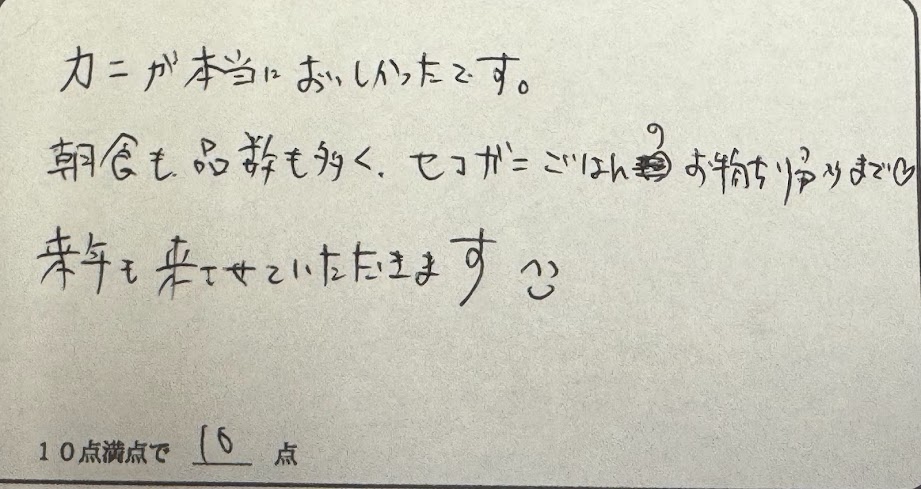 カニが本当においしかったです。
朝食も、品数も多く、セコガニごはんのお持ち帰りまで♡
来年も来させていただきます
10点満点で 10 点